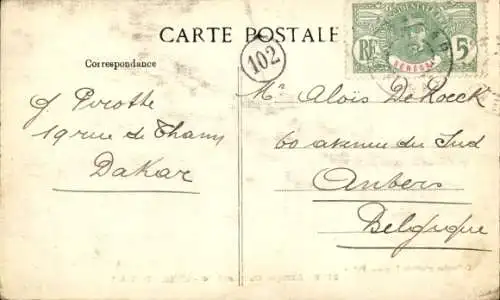 CARTE POSTALE
Correspondance
102
RF
5
SÉNÉGAL
J. Pirotte
19 rue de Thann
Dakar
Mr Aloïs De Koeck
60 avenue du Sud
Anvers
Belgique